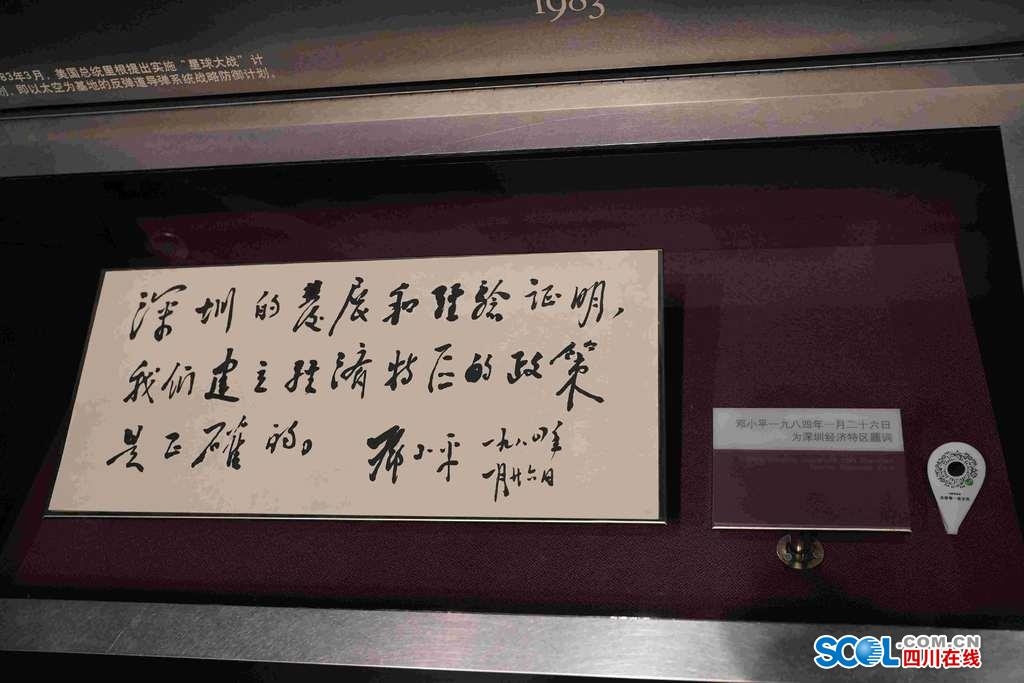 1983
83年3月，美国总统里根提出实施“星球大战”计
划，即以太空为基地的反弹道导弹系统战略防御计划。
深圳的发展和经验证明，
我们建立经济特区的政策
是正确的。
邓小平 一九八四年
一月廿六日
邓小平一九八四年一月二十六日
为深圳经济特区题词
SCOL.COM.CN
四川在线